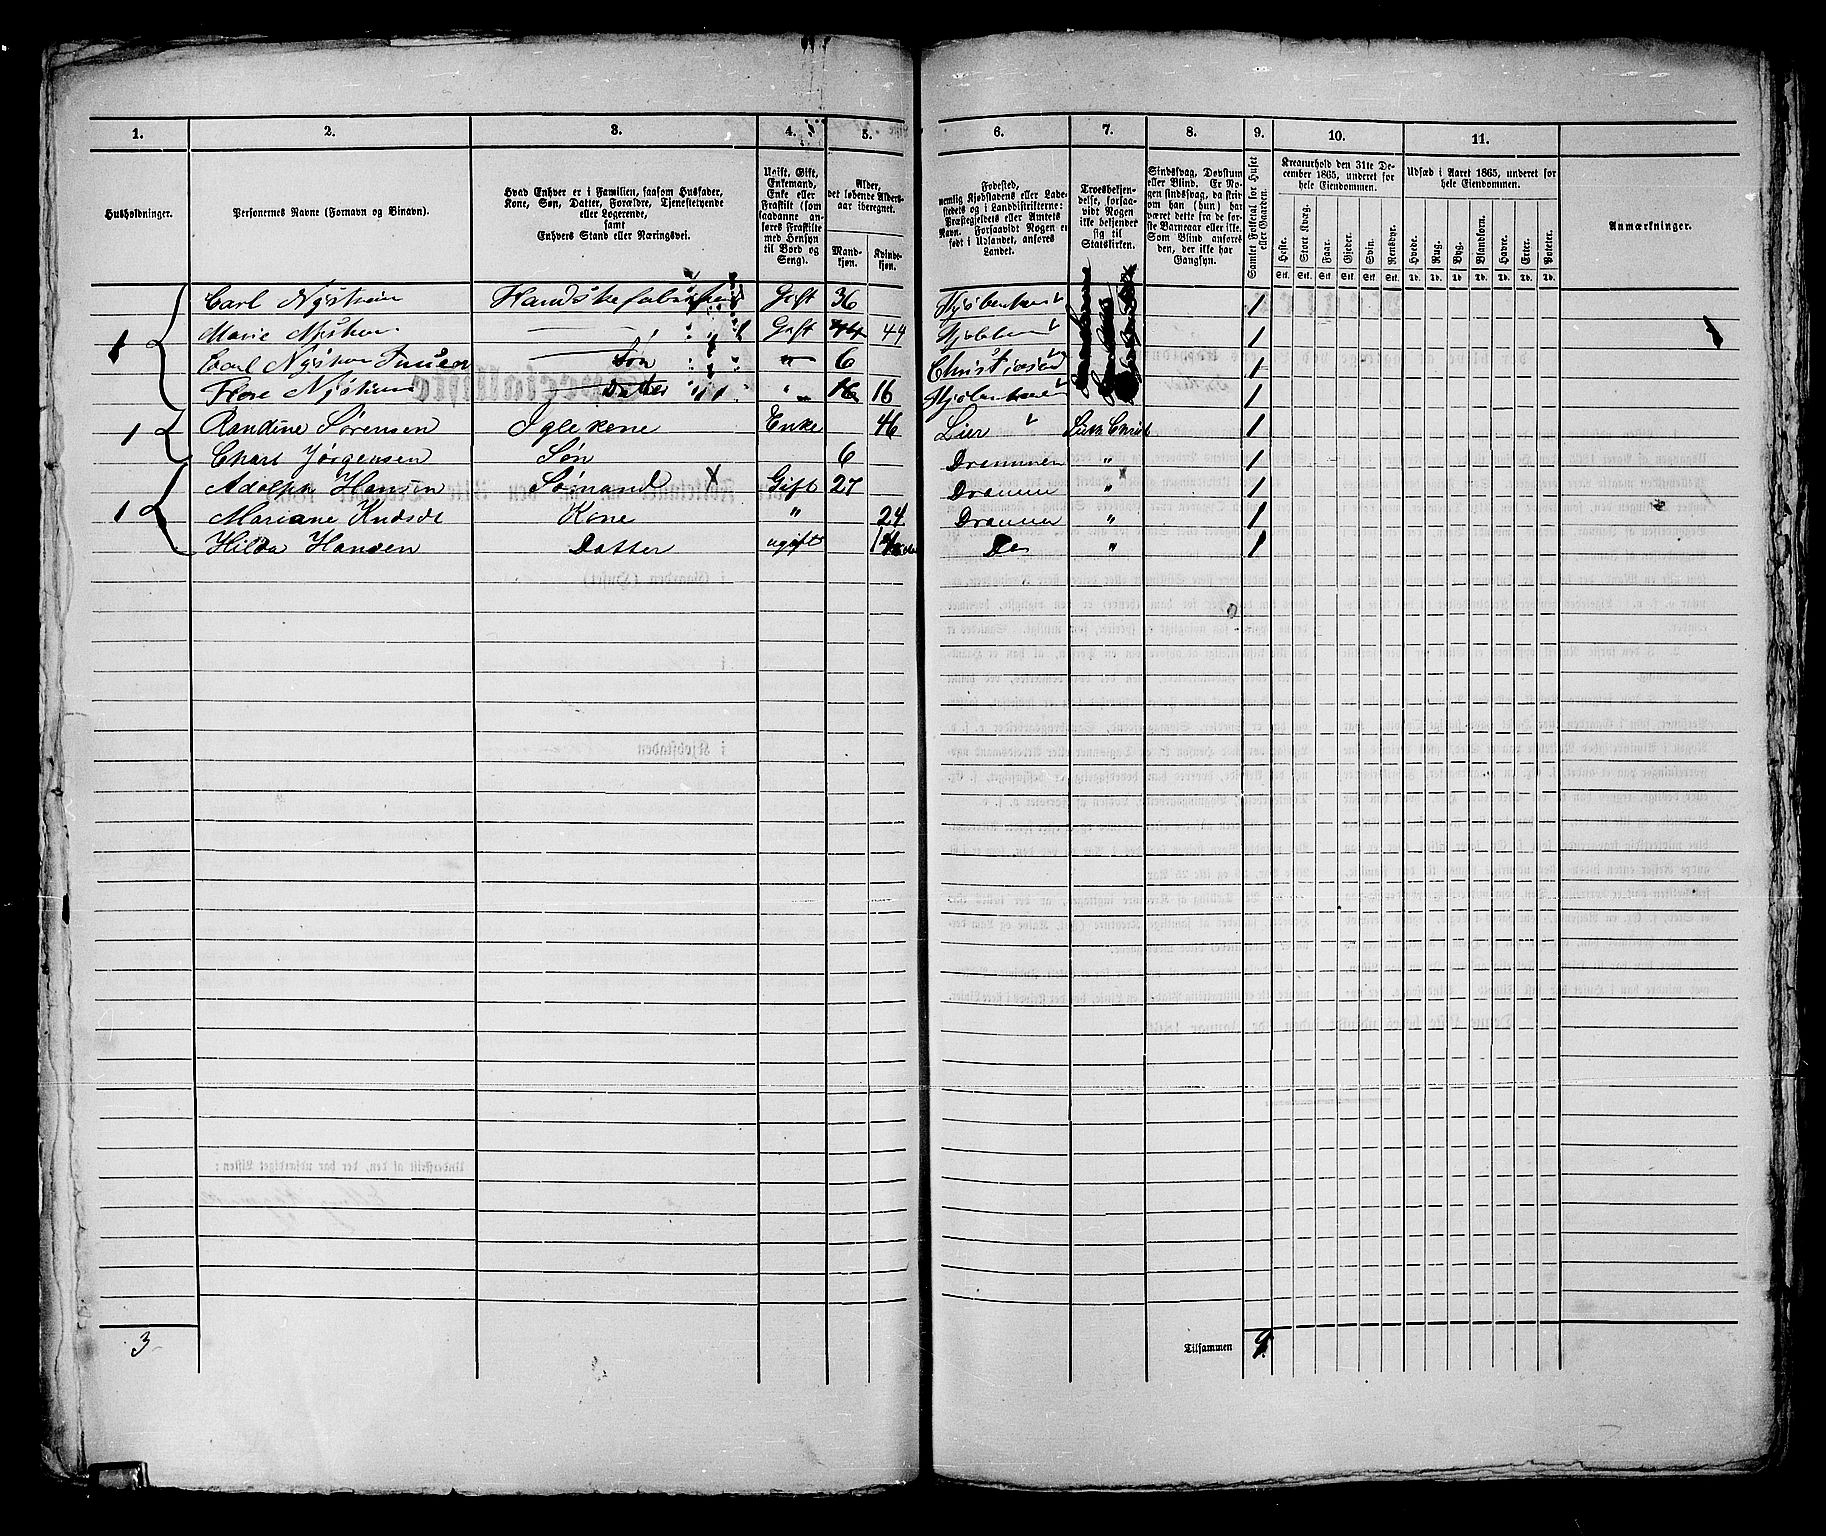 1. 2. 3. 4. 5. 6. 7. 8. 9. 10. 11.
Husholdninger.
Personernes Navne (Fornavn og Binavn).
Hvad Enhver er i Familien, saasom Husfader,
Kone, Søn, Datter, Forældre, Tjenestetyende
eller Logerende,
samt
Enhvers Stand eller Næringsvei.
Ugift, Gift,
Enkemand,
Enke eller
Fraskilt (som
saadanne an-
føres Fraskilte
med Hensyn
til Bord og
Seng).
Alder,
det løbende Alders-
aar iberegnet.
Mand-
kjøn.
Kvinde-
kjøn.
Fødested,
nemlig Kjøbstadens eller Lade-
stedets og i Landdistrikterne:
Præstegjeldets eller Amtets
Navn. Forsaavidt Nogen er
født i Udlandet, anføres
Landet.
Troesbekjen-
delse, forsaa-
vidt Nogen
ikke bekjender
sig til
Statskirken.
Sindssvag, Døvstum
eller Blind. Er No-
gen sindssvag, da skriv
om han (hun) har
været dette fra de før-
ste Barneaar eller ikke.
Som Blind anføres
den, der ikke har
Gangsyn.
Samlet Folketal for Huset
eller Gaarden.
Kreaturhold den 31te De-
cember 1865, underet for
hele Eiendommen.
Heste. Stort Kvæg. Faar. Gjeder. Svin. Rensdyr.
Stk. Stk. Stk. Stk. Stk. Stk.
Udsæd i Aaret 1865, underet for
hele Eiendommen.
Hvede. Rug. Byg. Blandkorn. Havre. Erter. Poteter.
Td. Td. Td. Td. Td. Td. Td.
Anmærkninger.
Carl Nystrøm Handskefabrikant Gift 36 Kjøbenhavn 1
1 Marie Nystrøm Gift 44 1
Carl Søn " 6 1
Nystrøm Datter " 16 16 Kjøbenhavn 1
1 Randine Sørensen Iglekone Enke 46 Lier Luth Christ 1
Charl Jørgensen Søn 6 Drammen " 1
Adolph Hansen Sømand X Gift 27 Drammen " x 1
1 Mariane Kone " 24 Drammen " 1
Hilda Hansen Datter ugift Do " 1
3
Tilsammen 9.